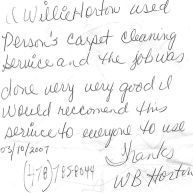 I Willie Horton used
Person's carpet cleaning
service and the job was
done very very good I
would reccomend this
service to everyone to use
03/10/2007
Thanks
(478) 785-8044
WB Horton